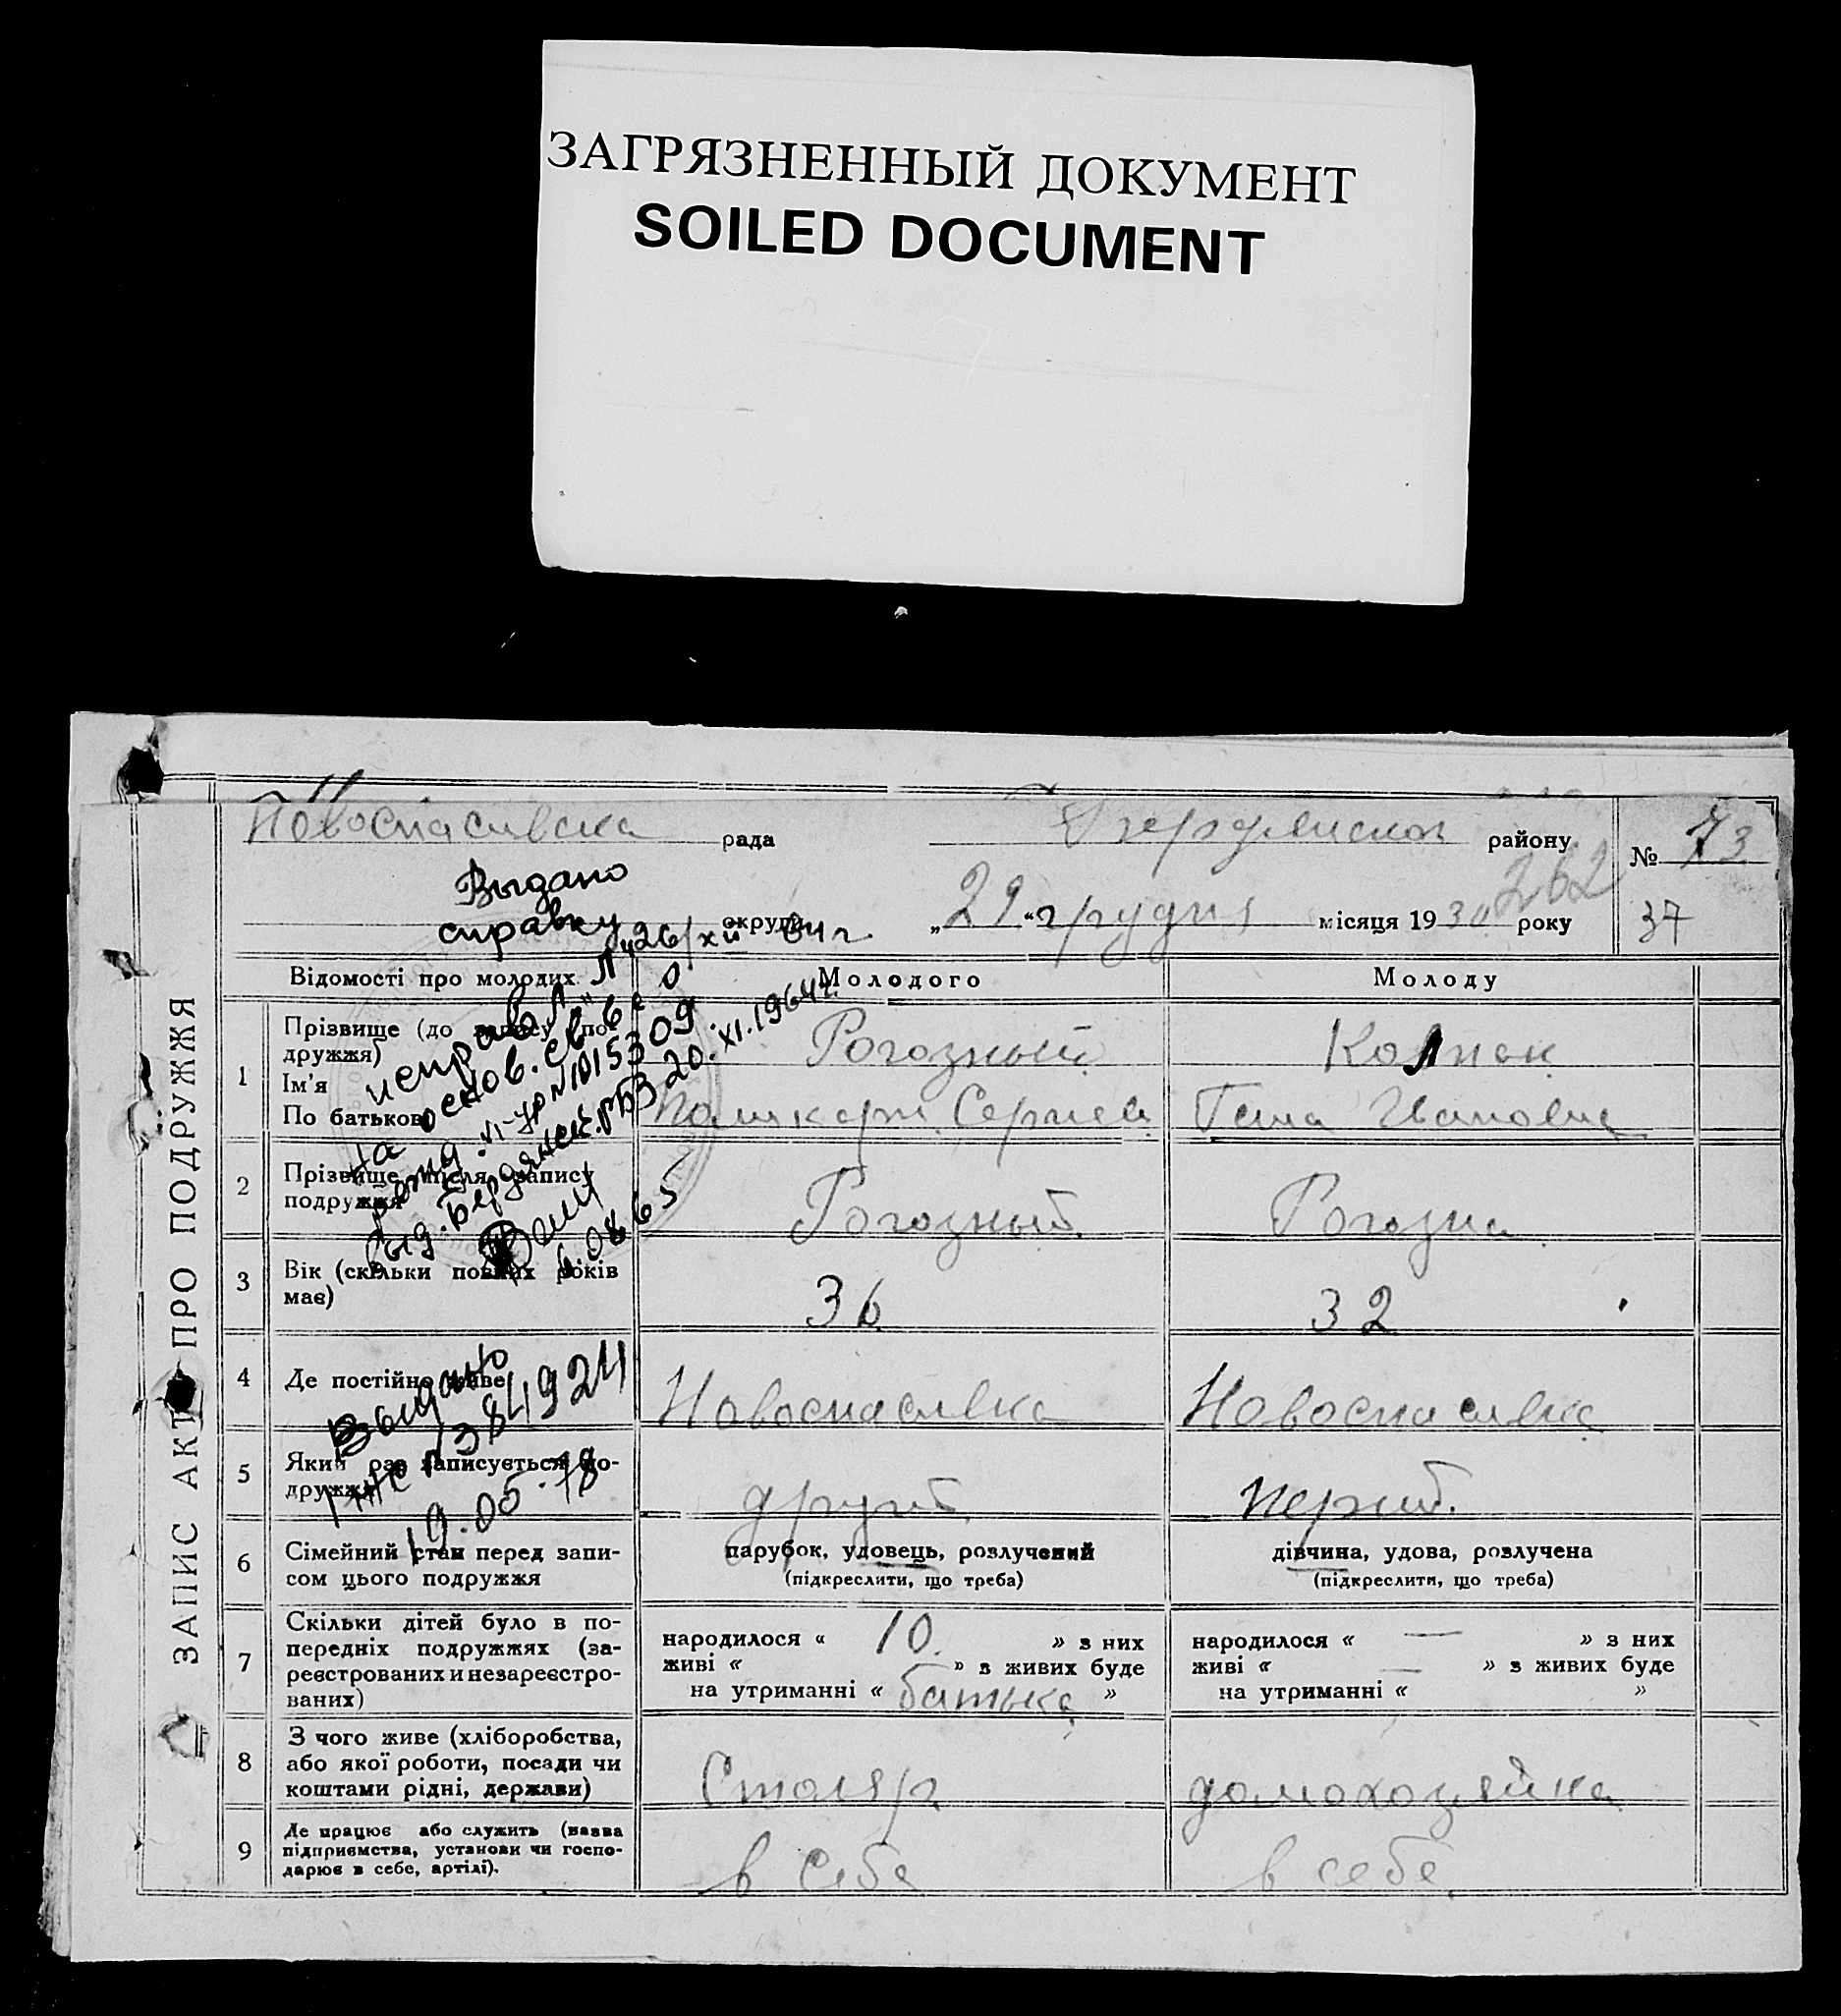 ЗАГРЯЗНЕННЫЙ ДОКУМЕНТ
SOILED DOCUMENT
ЗАПИС АКТ ПРО ПОДРУЖЖЯ
Новоспасивска рада
району
№ 73
Выдано
справку
округи
„29“ грудня місяця 1930 року
262
37
26/XII 64 г.
Відомості про молодих
Молодого
Молоду
1
Прізвище (до запису подружжя)
Ім'я
По батькові
Рогозный
Сергиев
Колнок
Гана Ивановна
исправл. "Л"
на основ. св-во
рожд. VI-УР № 1015309
выд. Бердянск. РБЗ 20.XI.1964 г.
6.08.65
2
Прізвище після запису
подружжя
Рогозный
Рогозна
3
Вік (скільки повних років
має)
36
32
4
Де постійно живе
Новоспасивка
Новоспасивка
Выдано
384924
19.05.78
5
Який раз записується по-
дружжя
другий
перший.
6
Сімейний стан перед запи-
сом цього подружжя
парубок, удовець, розлучений
(підкреслити, що треба)
дівчина, удова, розлучена
(підкреслити, що треба)
7
Скільки дітей було в по-
передніх подружжях (за-
реєстрованих и незареєстро-
ваних)
народилося « 10. » з них
живі « » з живих буде
на утриманні « батька »
народилося « — » з них
живі « — » з живих буде
на утриманні « »
8
З чого живе (хліборобства,
або якої роботи, посади чи
коштами рідні, держави)
Столяр
домохозяйка
9
Де працює або служить (назва
підприємства, установи чи госпо-
дарює в себе, артілі).
в себе
в себе